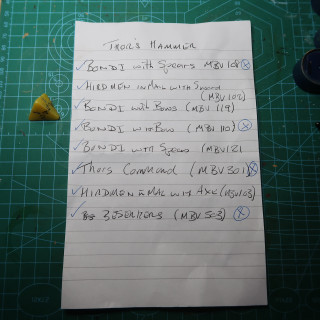 THOR'S HAMMER
✓ BONDI with Spears MBV 108 ⓧ
✓ HIRDMEN IN MAIL with Sword
(MBV 102)
✓ BONDI with Bows (MBV 119)
✓ BONDI with Bows (MBV 110) ⓧ
✓ BONDI with Spears (MBV 121
✓ Thors Command (MBV 301) ⓧ
✓ HIRDMEN IN MAIL with Axe (MBV103)
✓ BESERKERS (MBV 503) ⓧ